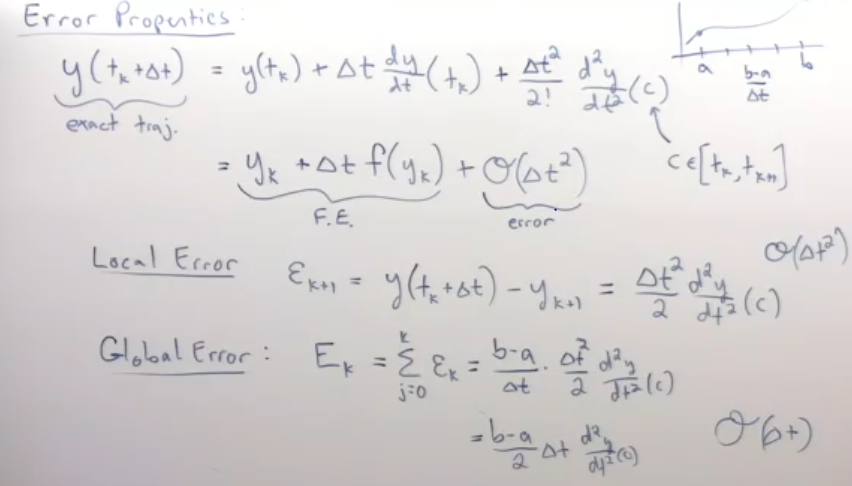 Error Properties:
y(t_k+Δt) = y(t_k) + Δt dy/dt (t_k) + Δt²/2! d²y/dt² (c)
exact traj.
a b-a/Δt b
= y_k + Δt f(y_k) + O(Δt²)
c ∈ [t_k, t_k+1]
F.E. error
Local Error ε_k+1 = y(t_k+Δt) - y_k+1 = Δt²/2 d²y/dt² (c) O(Δt²)
Global Error: E_k = Σ_{j=0}^{k} ε_k = b-a/Δt · Δt²/2 d²y/dt² (c)
= b-a/2 Δt d²y/dt² (c) O(Δt)